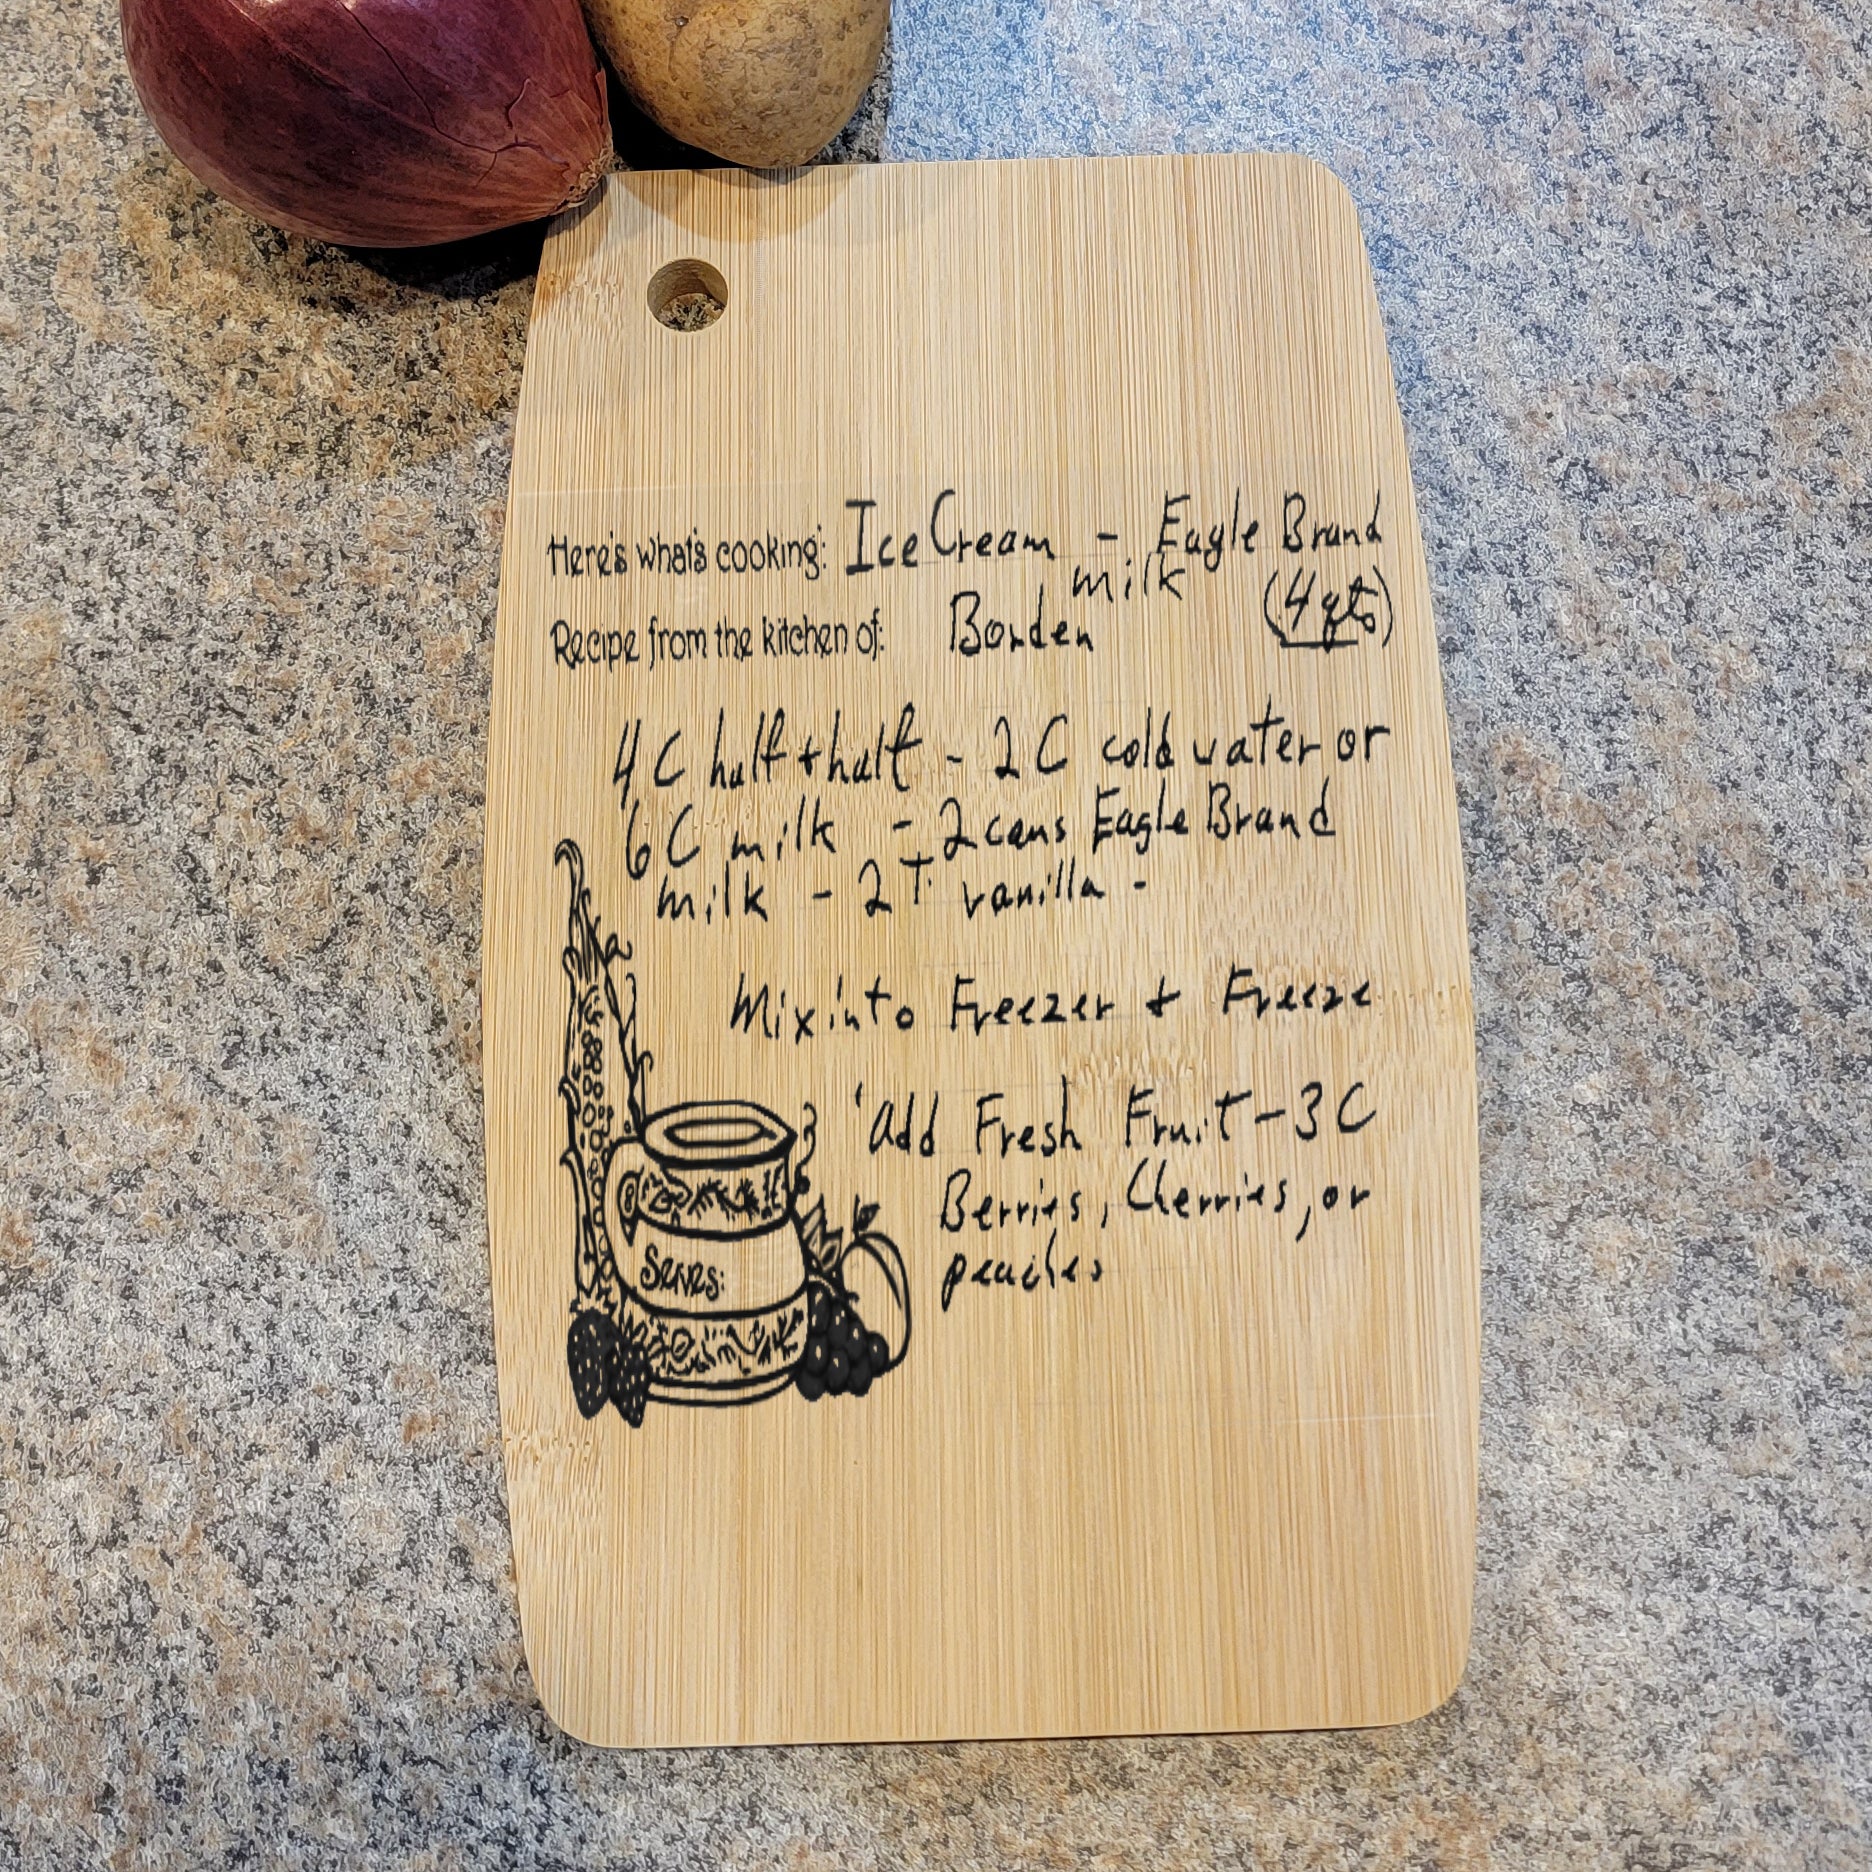 Here's what's cooking: Ice Cream - Eagle Brand
milk (4 qts)
Recipe from the kitchen of: Borden
4 C half + half - 2 C cold water or
6 C milk - 2 cans Eagle Brand
milk - 2 T. vanilla -
Mix into Freezer + Freeze
'add Fresh Fruit - 3 C
Berries, Cherries, or
peaches
Serves: